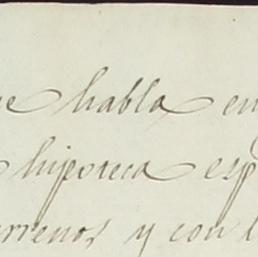 e habla en
hipoteca esp
rrenos y con l